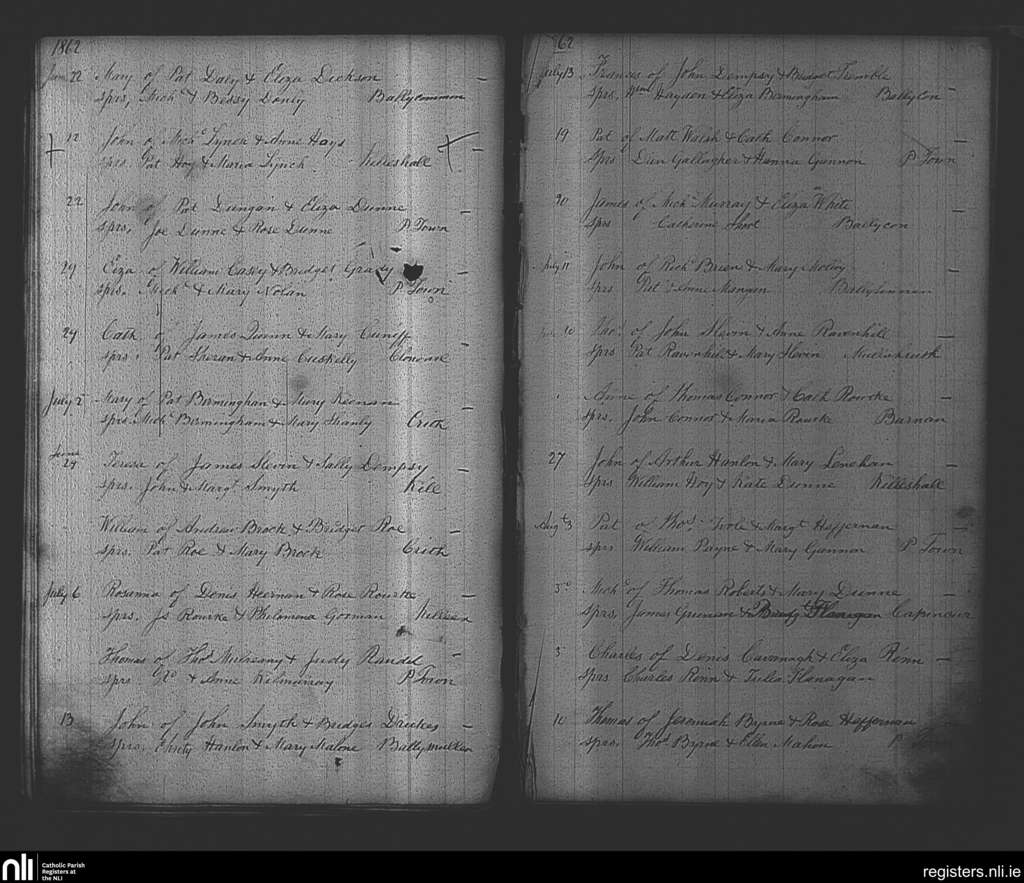 1862
June 22 Mary of Pat Daly & Eliza Dickson —
sprs, Mich^l & Bessy Donly Ballycommon
12 John of Mich^l Lynch & Anne Hays —
sprs. Pat Hoy & Maria Lynch Killeshall
22 John of Pat Dungan & Eliza Dunne —
sprs, Joe Dunne & Rose Dunne P. Town
29 Eiza of William Casey & Bridget Grady —
sprs. Mich^l & Mary Nolan P Town
29 Cath. of James Quinn & Mary Cuniff —
sprs. Pat Sheran & Anne Cuskelly Clonone
July 2 Mary of Pat Birmingham & Mary Keenan —
sprs Mich^l Birmingham & Mary Shanly Crith
June 29 Teresa of James Slevin & Sally Dempsy —
sprs. John & Marg^t Smyth Kill
William of Andrew Brock & Bridget Roe —
sprs. Pat Roe & Mary Brock Crith
July 6 Rosanna of Denis Heernan & Rose Rourke —
sprs. Js Rourke & Philomena Gorman Killeen
Thomas of Tho^s Mulreany & Judy Randel —
sprs & Anne Kilmurray P Town
13 John of John Smyth & Bridget —
sprs. Christy Hanlon & Mary Malone Ballymullen
62
July 13 Frances of John Dempsy & Bridget Tremble
sprs. W^m Hayden & Eliza Birmingham Ballycon —
19 Pat of Matt Walsh & Cath Connor
sprs Dan Gallagher & Hanna Gannon P Town
20 James of Mich^l Murray & Eliza White
sprs Catherine Ballycon —
July 11 John of Rich^d Brien & Mary Molloy —
sprs Pat & Anne Mangan
10 Tho^s of John Slevin & Anne Ravenhill —
sprs Pat Ravenhill & Mary Slevin
Anne of Thomas Connor & Cath Rourke —
sprs. John Connor & Maria Rourke Barnan
27 John of Arthur Hanlon & Mary Lenehan —
sprs William Hoy & Kate Dunne Killeshall
Aug^t 3 Pat of Tho^s Toole & Marg^t Heffernan —
sprs William Payne & Mary Gannon P Town
3 Mich^l of Thomas Roberts & Mary Dunne —
sprs, James & Flanagan
3 Charles of Denis Cavanagh & Eliza Rinn —
sprs Charles Rinn & Julia Flanagan
10 Thomas of Jeremiah Byrne & Rose Heffernan
sprs. Tho^s Byrne & Ellen Mahon P Town
nli Catholic Parish
Registers at
the NLI
registers.nli.ie